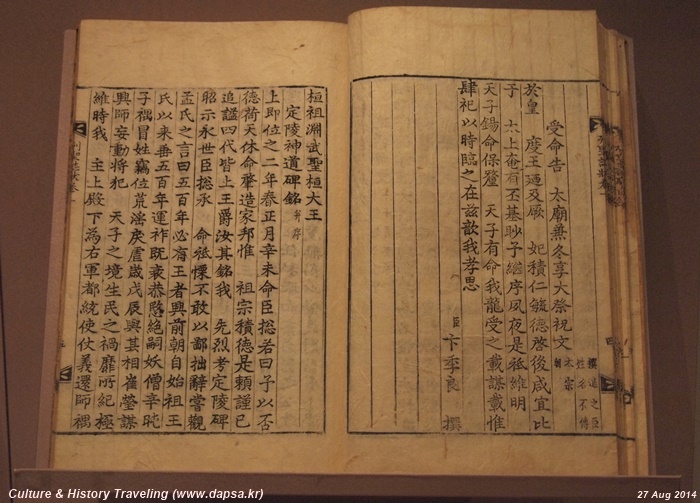 受命告 太廟兼冬享大祭祝文 撰進之臣姓名不傳 太宗朝
於皇 度王廼及厥 妃積仁毓德啓後咸宜比
予 太上奄有丕基眇予繼序夙夜是祗維明
天子錫命保釐 天子有命我龍受之載謀載惟
肆祀以時臨之在玆歆我孝思
臣 卞季良 撰
桓祖淵武聖桓大王
定陵神道碑銘 幷序
上即位之二年春正月辛未命臣捴若曰予以否
德荷天休命肇造家邦惟 祖宗積德是賴謹已
追諡四代皆上王爵汝其銘我 先烈考定陵碑
昭示永世臣捴承 命祗慄不敢以鄙拙辭嘗觀
孟氏之言曰五百年必有王者興前朝自始祖王
氏以來垂五百年運祚旣衰恭愍絶嗣妖僧辛旽
子禑冒姓竊位荒淫戾虐歲戊辰與其相崔瑩謀
興師妄動將犯 天子之境生民之禍靡所紀極
維時我 主上殿下爲右軍都統使仗義還師禑
Culture & History Traveling (www.dapsa.kr)
27 Aug 2014